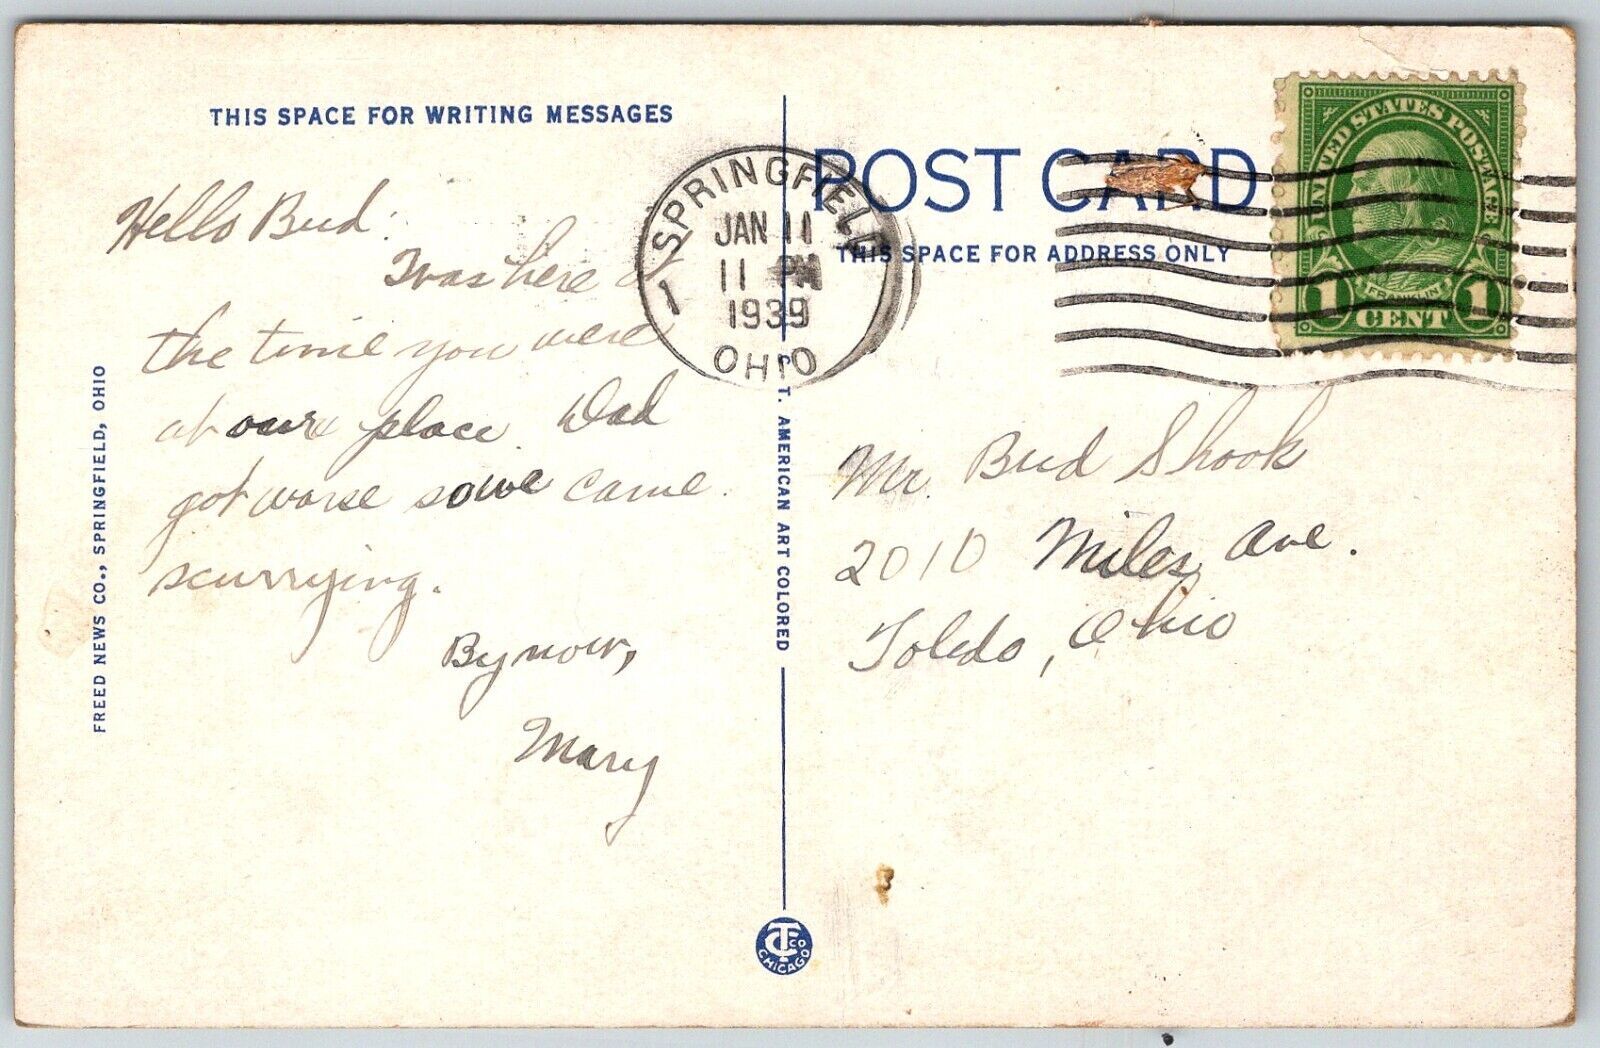 THIS SPACE FOR WRITING MESSAGES
Hello Bud:
I was here
the time you were
at our place. Dad
got worse so we came
scurrying.
By now,
Mary
FREED NEWS CO., SPRINGFIELD, OHIO
SPRINGFIELD
1
JAN 11
11 PM
1939
OHIO
C. T. AMERICAN ART COLORED
CT CO
CHICAGO
POST CARD
THIS SPACE FOR ADDRESS ONLY
UNITED STATES POSTAGE
FRANKLIN
1 CENT 1
Mr. Bud Shook
2010 Miles Ave.
Toledo, Ohio